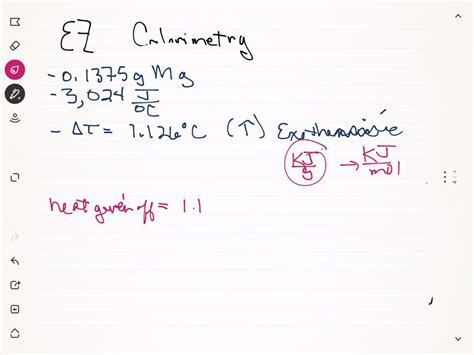 EZ Calorimetry
- 0.1375g Mg
- 3,024 J/°C
- ΔT = 1.126°C (↑) Exothermic
KJ/g → KJ/mol
heat given off = 1.1